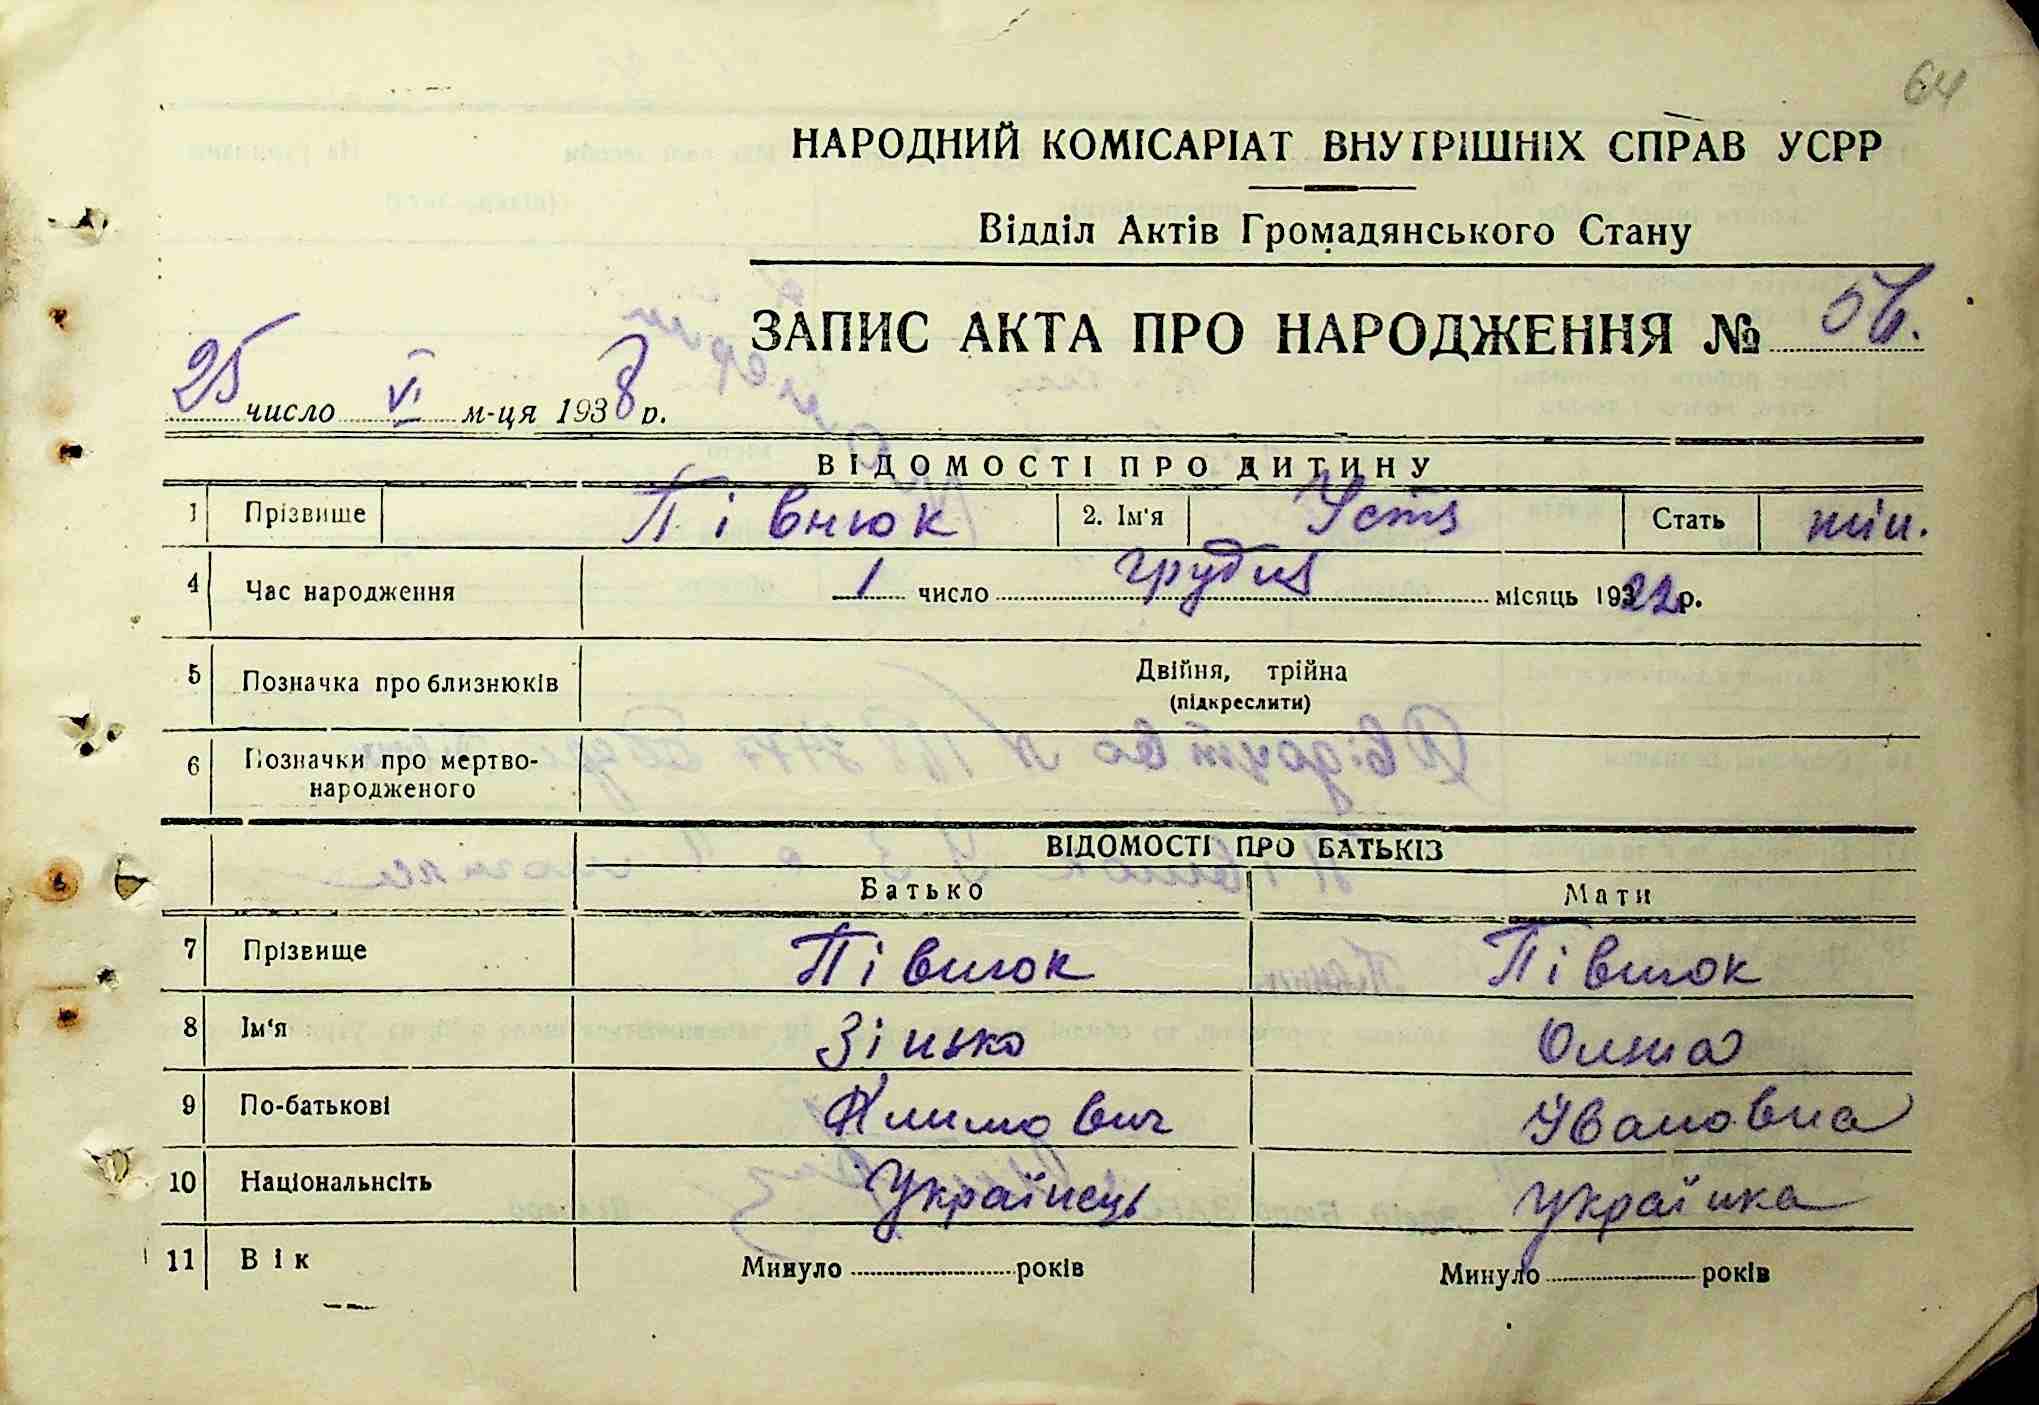 64
НАРОДНИЙ КОМІСАРІАТ ВНУТРІШНІХ СПРАВ УСРР
Відділ Актів Громадянського Стану
ЗАПИС АКТА ПРО НАРОДЖЕННЯ №
25 число VI м-ця 1938 р.
ВІДОМОСТІ ПРО ДИТИНУ
1 Прізвище Півнюк 2. Ім'я Устя Стать
4 Час народження 1 число грудня місяць 1922 р.
5 Позначка про близнюків Двійня, трійна
(підкреслити)
6 Позначки про мертво-
народженого
ВІДОМОСТІ ПРО БАТЬКІВ
Батько Мати
7 Прізвище Півнюк Півнюк
8 Ім'я Зінько Олена
9 По-батькові Климович Ивановна
10 Національнсіть Українець Українка
11 Вік Минуло років Минуло років